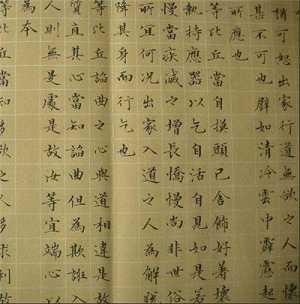 情可恕出家行道無欲
甚不可也譬如清冷雲中霹靂起
所應也
等比丘當自摸頭已舍飾好著壞
執持應器以乞自活自見如是若
慢當疾滅之增長憍慢尚非世俗
所宜何況出家入道之人為解脫
降其身而行乞也
等比丘諂曲之心與道相違是故
質直其心當知諂曲但為欺誑入
人則無是處是故汝等宜端心
為本
等比丘當知多欲之人多求利